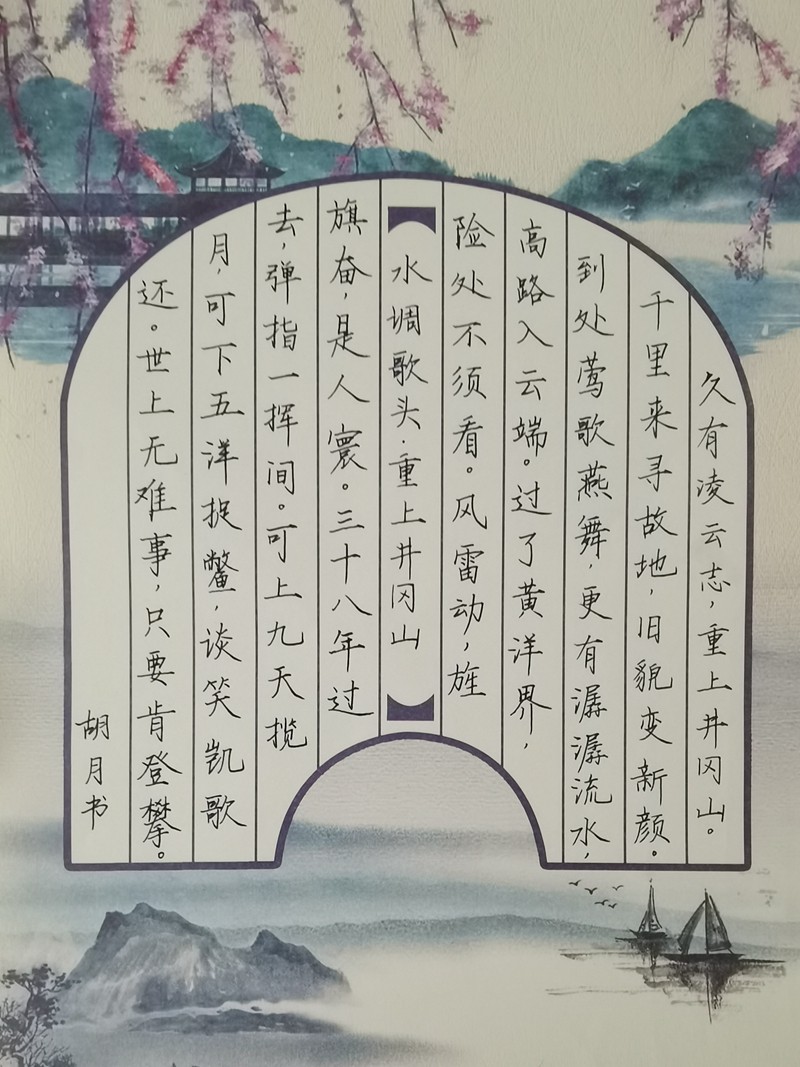 久有凌云志，重上井冈山。
千里来寻故地，旧貌变新颜。
到处莺歌燕舞，更有潺潺流水，
高路入云端。过了黄洋界，
险处不须看。风雷动，旌
水调歌头·重上井冈山
旗奋，是人寰。三十八年过
去，弹指一挥间。可上九天揽
月，可下五洋捉鳖，谈笑凯歌
还。世上无难事，只要肯登攀。
胡月书